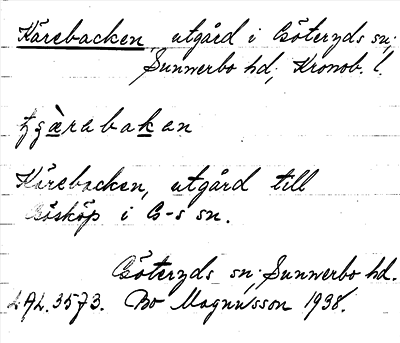 Kärebacken, utgård i Göteryds sn;
Sunnerbo hd; Kronob. l.
tʒgæ̀rabakan
Kärebacken, utgård till
Gösköp i G-s sn.
Göteryds sn; Sunnerbo hd.
LAL. 3573. Bo Magnusson 1938.